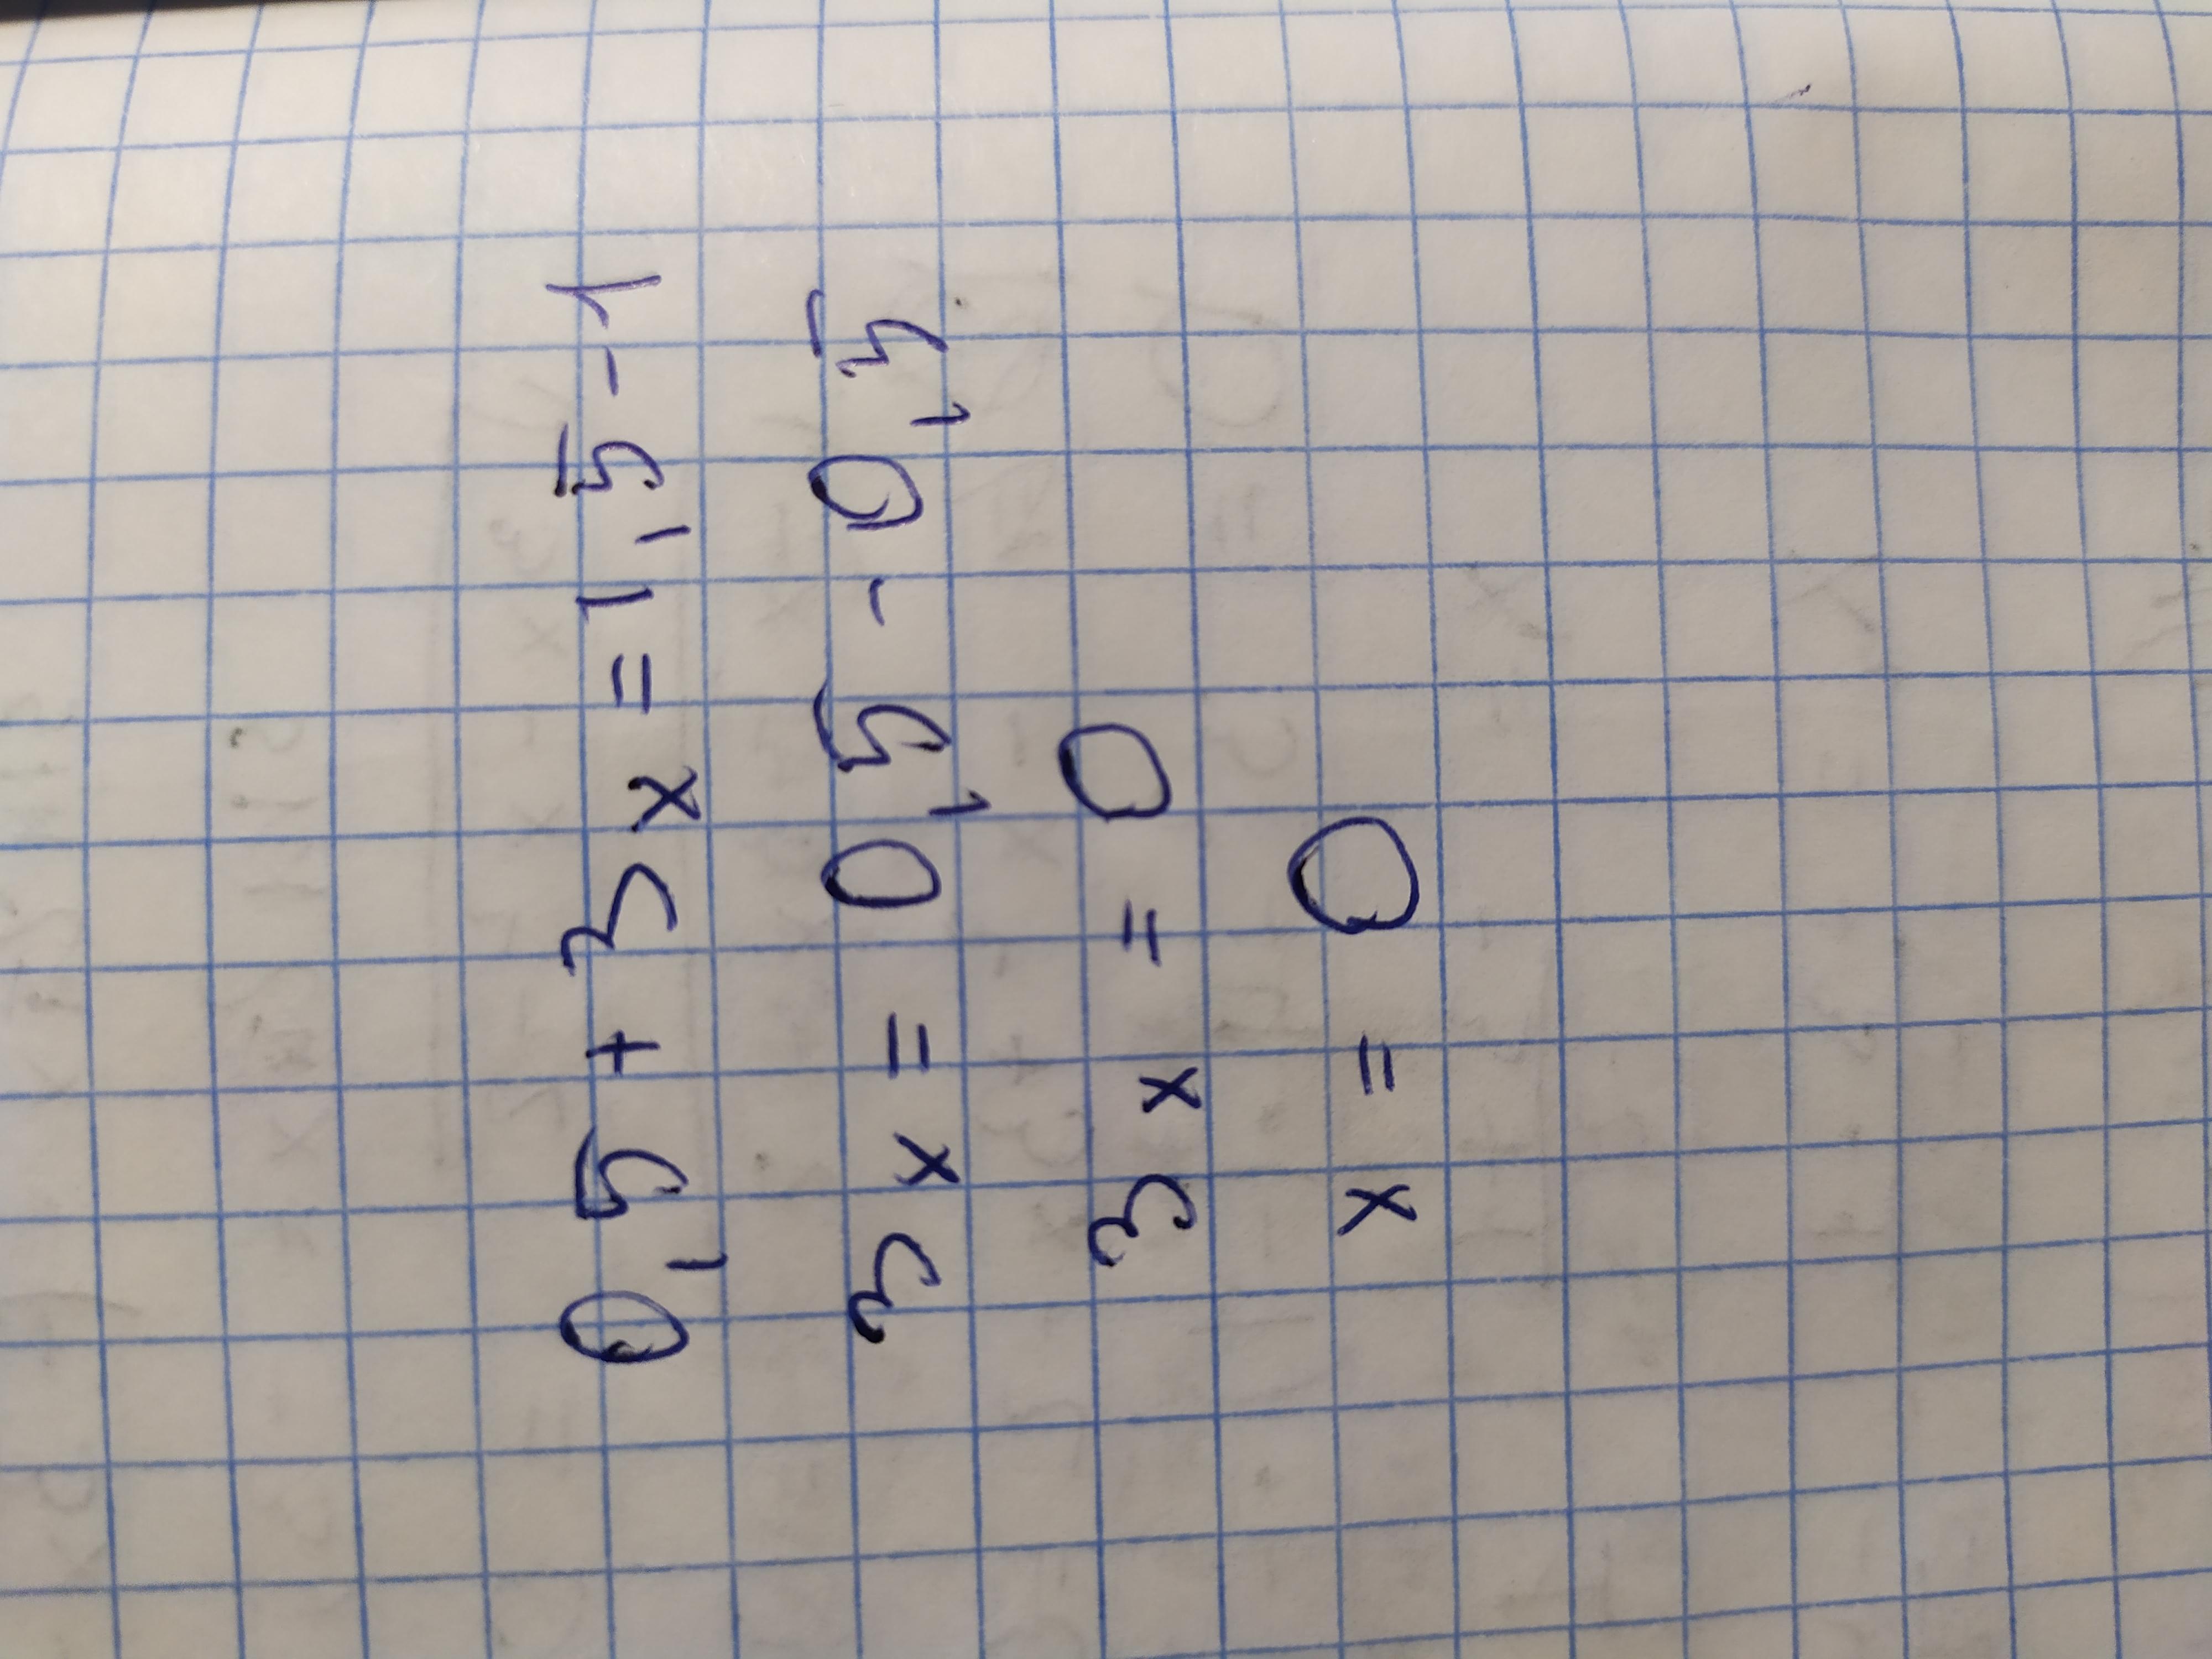 0,5 + 3x = 1,5 - 1
3x = 0,5 - 0,5
3x = 0
x = 0